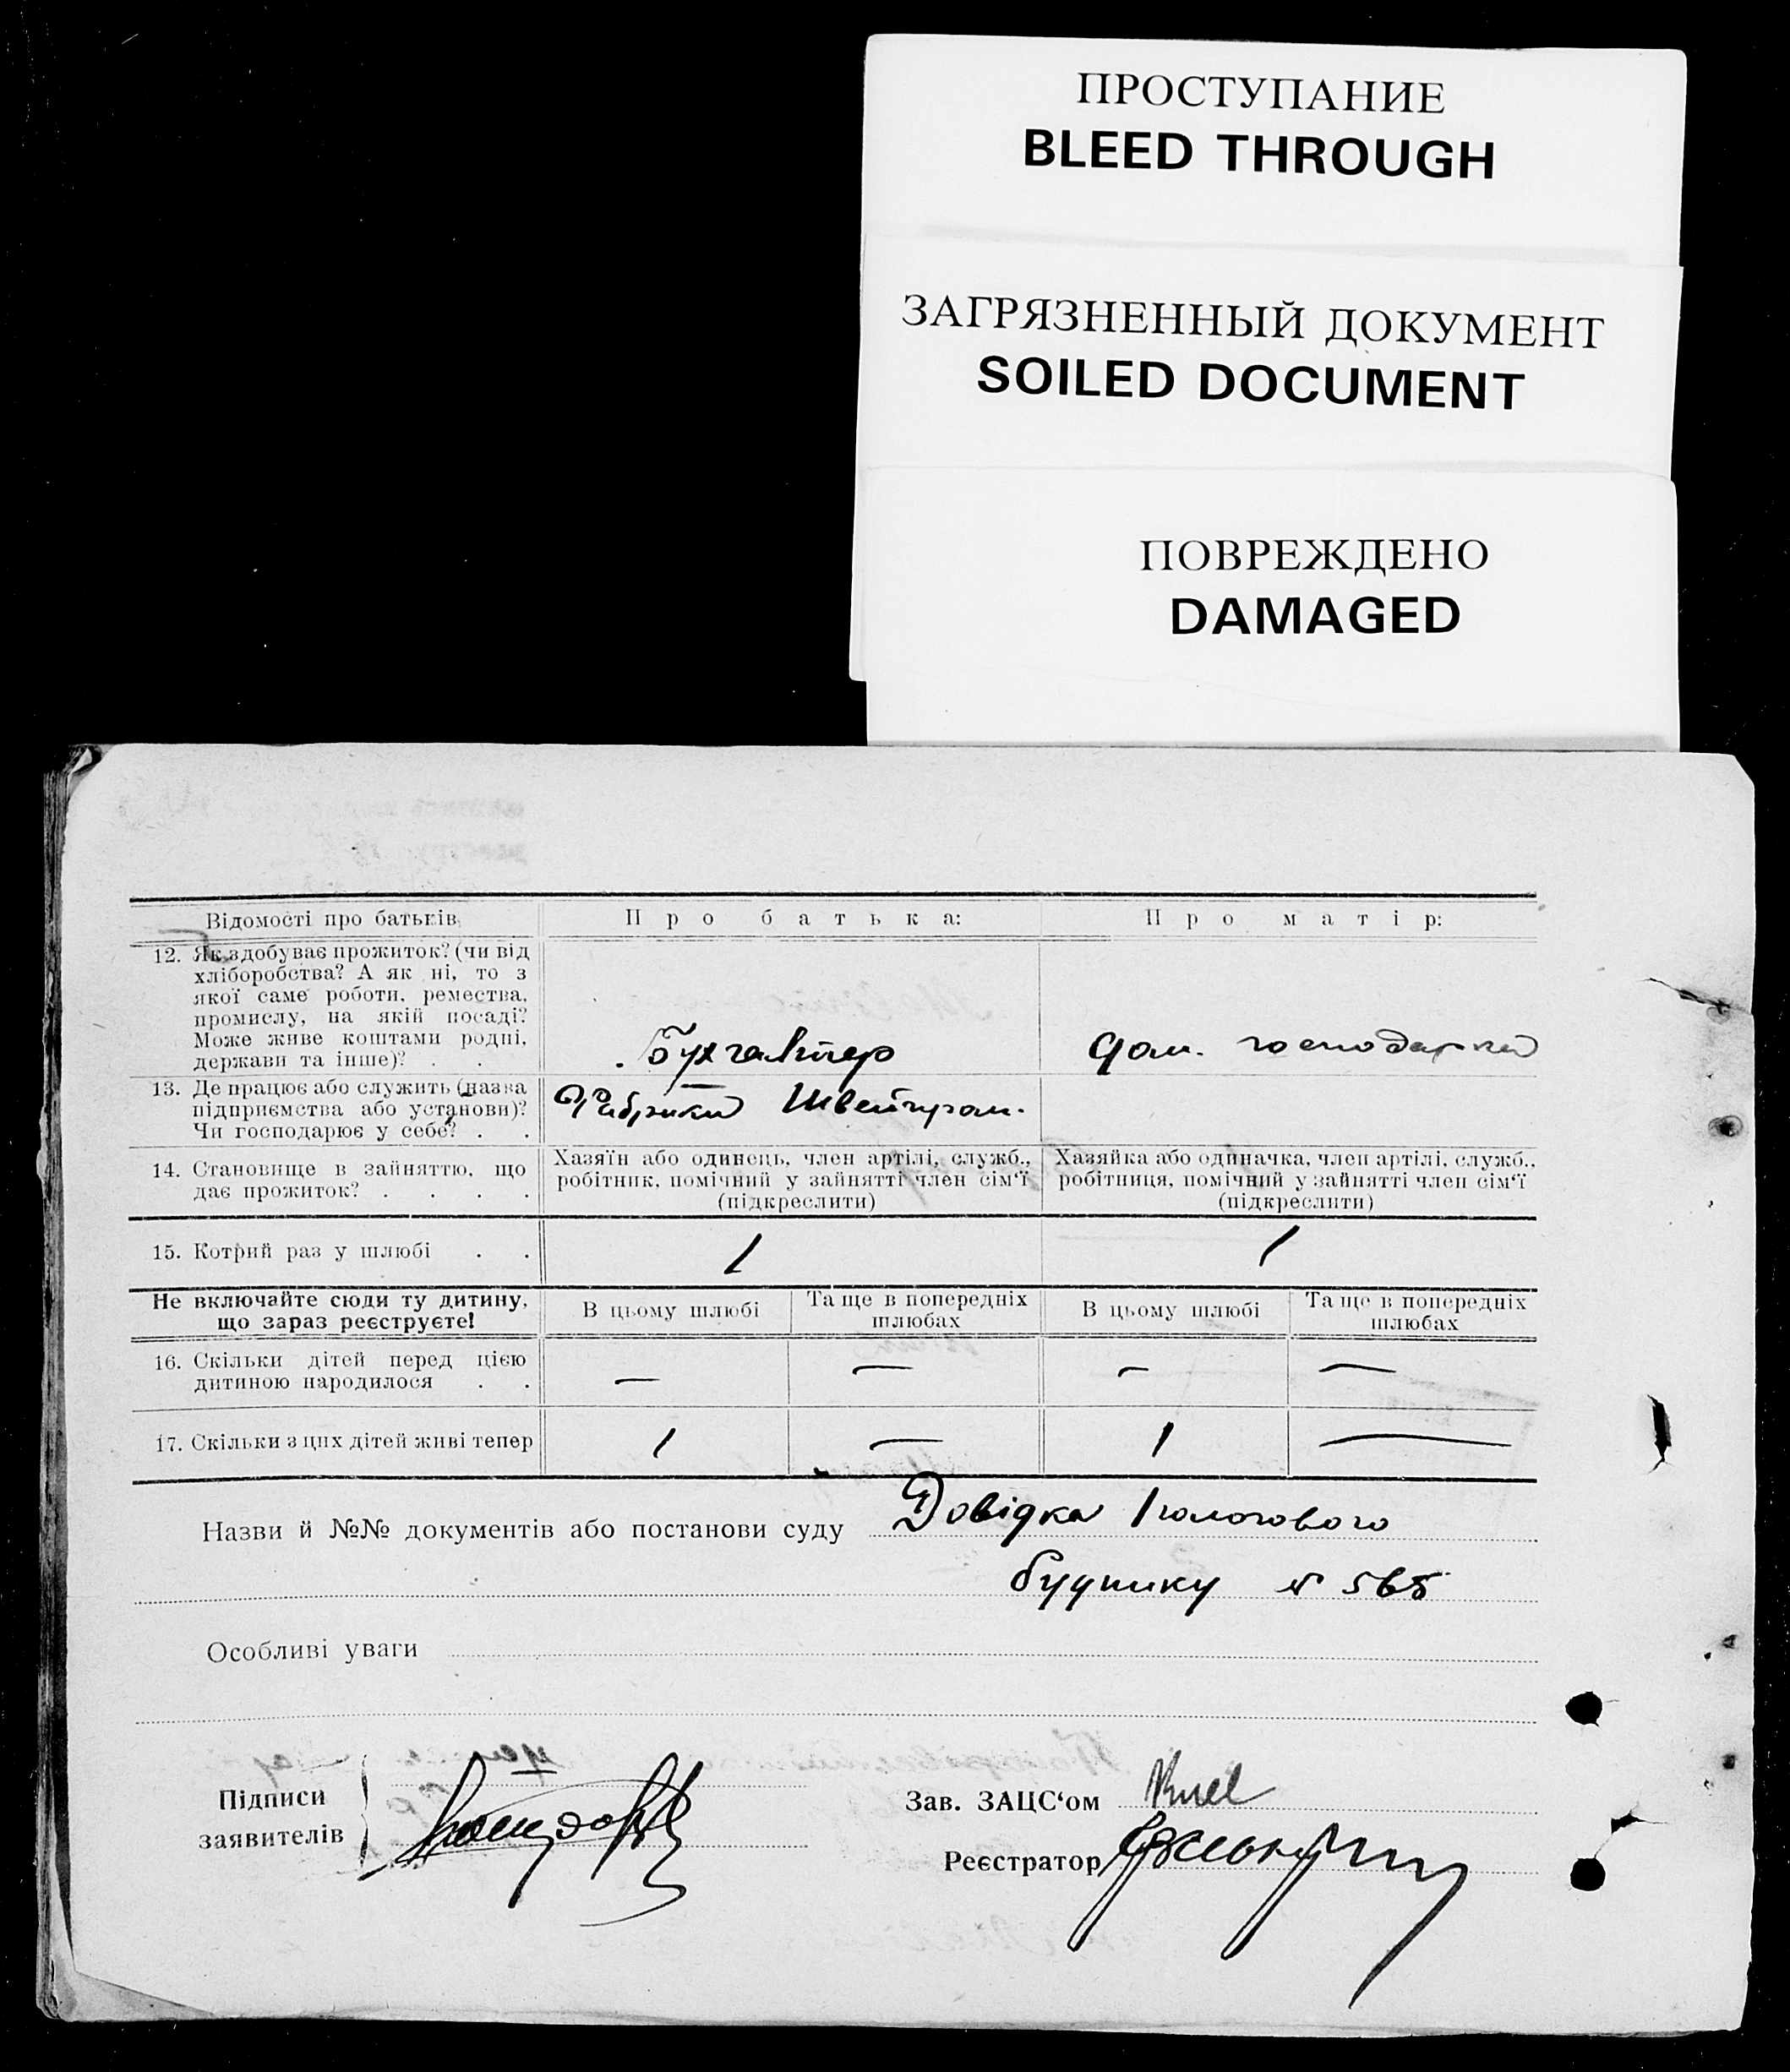 ПРОСТУПАНИЕ
BLEED THROUGH
ЗАГРЯЗНЕННЫЙ ДОКУМЕНТ
SOILED DOCUMENT
ПОВРЕЖДЕНО
DAMAGED
Відомості про батьків
Про батька:
Про матір:
12. Як здобуває прожиток? (чи від
хліборобства? А як ні, то з
якої саме роботи, ремества,
промислу, на якій посаді?
Може живе коштами родні,
держави та інше)? . .
Бухгалтер
дом. господарка
13. Де працює або служить (назва
підприємства або установи)?
Чи господарює у себе? . .
Фабрики Швейпром.
14. Становище в зайняттю, що
дає прожиток? . . . .
Хазяїн або одинець, член артілі, служб.,
робітник, помічний у зайнятті член сім'ї
(підкреслити)
Хазяйка або одиначка, член артілі, служб.,
робітниця, помічний у зайнятті член сім'ї
(підкреслити)
15. Котрий раз у шлюбі . .
1
1
Не включайте сюди ту дитину,
що зараз реєструєте!
В цьому шлюбі
Та ще в попередніх
шлюбах
В цьому шлюбі
Та ще в попередніх
шлюбах
16. Скільки дітей перед цією
дитиною народилося . .
— — — —
17. Скільки з цих дітей живі тепер
1 — 1 —
Назви й №№ документів або постанови суду Довідка пологового
будинку №
Особливі уваги
Підписи
заявителів
Зав. ЗАЦС'ом
Реєстратор